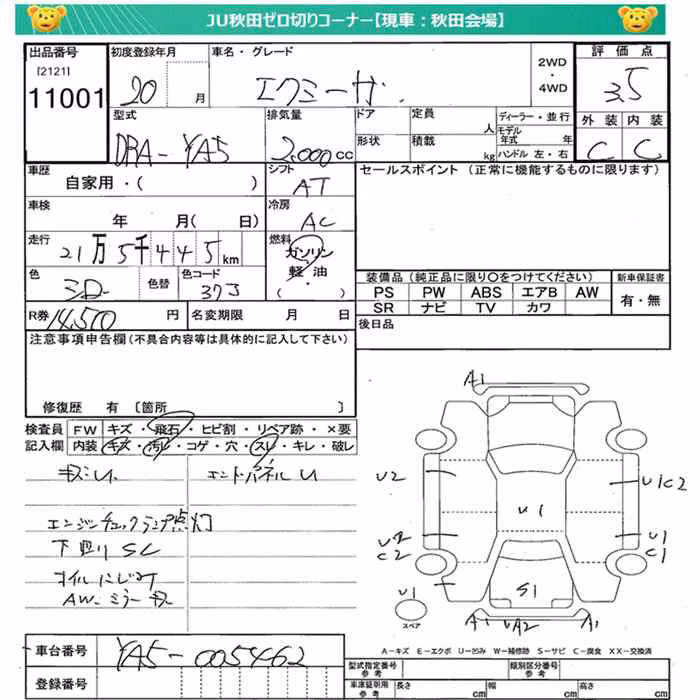 JU秋田ゼロ切りコーナー【現車：秋田会場】
出品番号 初度登録年月 車名・グレード 2WD・4WD 評価点
[2121]
11001
20 月 エクシーガ 3.5
型式 排気量 ドア 定員 人 ディーラー・並行 外装 内装
DBA-YA5 2000cc 形状 積載 kg モデル年式 年 ハンドル 左・右 C C
車歴 自家用・( ) シフト AT セールスポイント (正常に機能するものに限ります)
車検 年 月( 日) 冷房 AC
走行 21万5千445km 燃料 ガソリン・軽油・( )
色 色替 色コード 37J
装備品 (純正品に限り○をつけてください) 新車保証書
PS PW ABS エアB AW 有・無
SR ナビ TV カワ
R券 14,510 円 名変期限 月 日 後日品
注意事項申告欄(不具合内容等は具体的に記入して下さい)
修復歴 有 [箇所 ]
検査員記入欄 FW キズ・飛石・ヒビ割・リペア跡・×要
内装 キズ・汚レ・コゲ・穴・スレ・キレ・破レ
キズ・U. エンドパネル U
エンジンチェックランプ点灯
下廻り SC
オイルにじみ
AW・ミラーキズ
A1
U2 U1C2
U1
U2 C2 U1 C1
U1 S1
スペア A1 UA2 A1
A－キズ E－エクボ U－凹み W－補修跡 S－サビ C－腐食 XX－交換済
車台番号 YA5-005462
型式指定番号 参考 類別区分番号 参考
登録番号 車庫証明用 参考 長さ cm 幅 cm 高さ cm